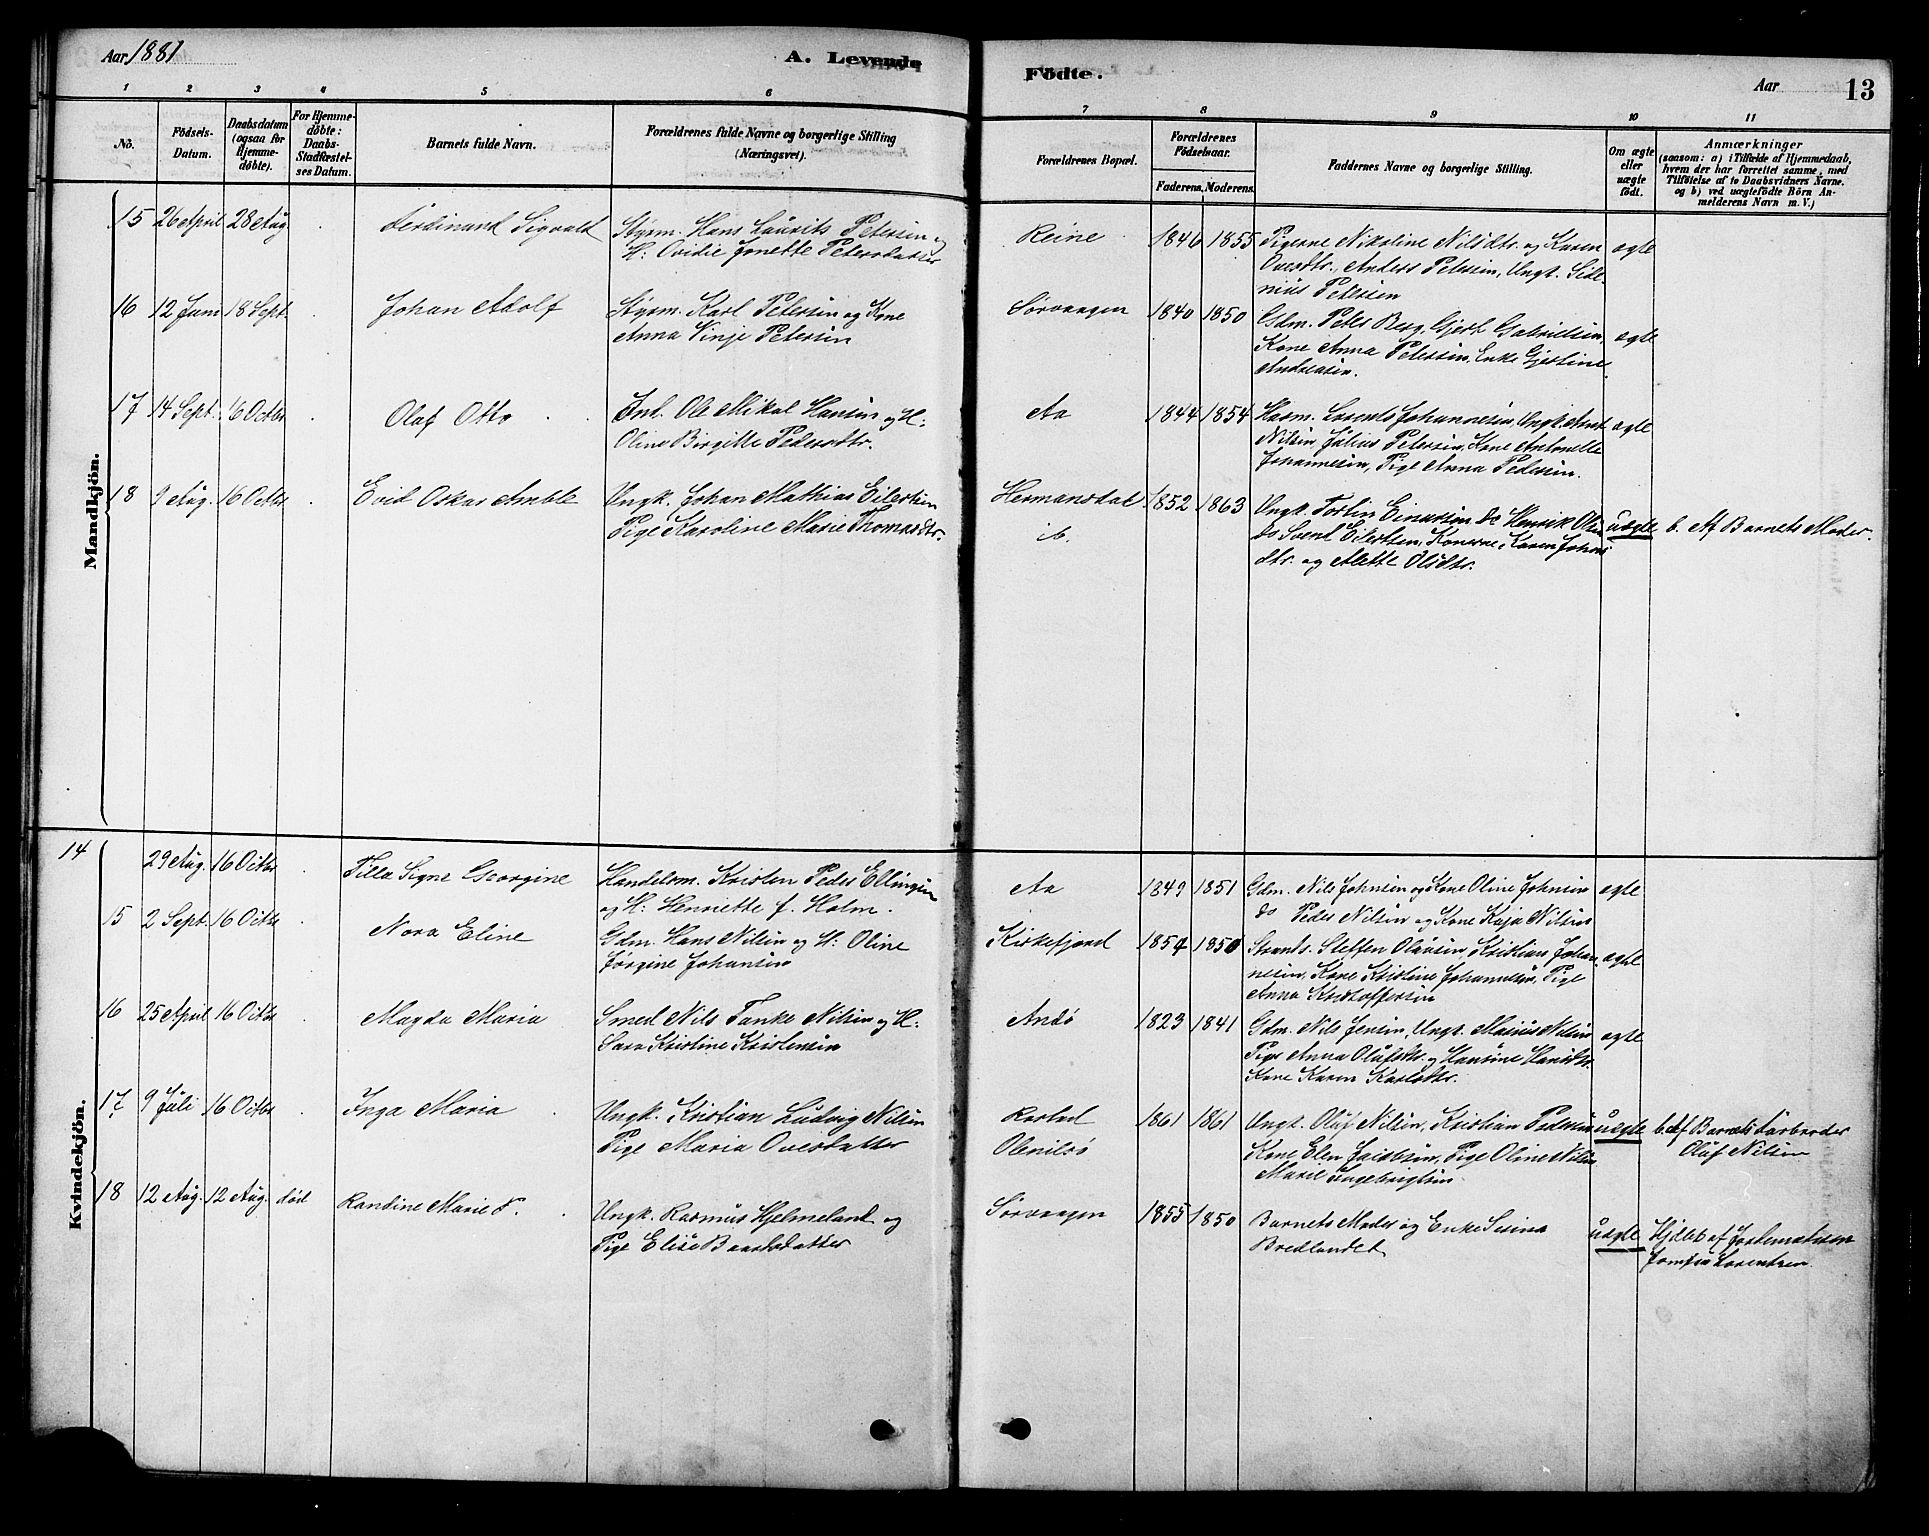 Aar 1881
A. Levende
Fødte.
Aar
13
1 2 3 4 5 6 7 8 9 10 11
No.
Fødsels-
Datum.
Daabsdatum
(ogsaa for
Hjemme-
døbte).
For Hjemme-
døbte:
Daabs-
Stadfæstel-
ses Datum.
Barnets fulde Navn.
Forældrenes fulde Navne og borgerlige Stilling
(Næringsvei).
Forældrenes Bopæl.
Forældrenes
Fødselsaar.
Faderens. Moderens.
Faddernes Navne og borgerlige Stilling.
Om ægte
eller
uægte
født.
Anmærkninger
(saasom: a) i Tilfælde af Hjemmedaab,
hvem der har forrettet samme, med
Tilføielse af to Daabsvidners Navne.
og b) ved uægtefødte Børn An-
melderens Navn m. V.)
Mandkjön.
15 26 April 28 Aug. Ferdinand Sigvald
Styrm. Hans Laurits Petersen og
H: Ovidie Jonette Petersdatter
Reine 1846 1855
Pigerne Nikoline Nilsdtr. og Karen
Ovesdtr., Anders Petersen, Ungk. Side-
nius Petersen
ægte
16 12 Juni 18 Sept. Johan Adolf
Styrm. Karl Petersen og Kone
Anna Vinje Petersen
Sørvaagen 1840 1850
Gdm. Peder Berg, Gjert Gabrielsen,
Kone Anna Petersen, Enke Gjertine
Andreasen.
ægte
17 14 Sept. 16 Octbr Olaf Otto
Ind. Ole Mikal Hansen og H:
Oline Birgitte Pedersdtr.
Aa 1844 1854
Husm. Lorents Johannesen, Ungk. Arnt
Nilsen, Julius Petersen, Kone Antonette
Johannesen, Pige Anna Pedersen.
ægte
18 9 Aug. 16 Octbr. Evid Oskar Amble
Ungk. Johan Mathias Eilertsen
Pige Karoline Marie Thomasdtr.
Hermansdal 1852 1863
ib.
Ungk. Torlin Einarsen Do Henrik Olsen
Do Svent Eilertsen, Konerne Karen Johans
dtr. og Alette Olsdtr.
uægte b. Af Barnets Moder.
Kvindekjön.
14 29 Aug. 16 Octbr Tilla Signe Georgine
Handelsm. Kristen Peder Ellingsen
og H: Henriette f. Holm.
Aa 1849 1851
Gdm. Nils Johnsen og Kone Oline Johnsen
do Peder Nilsen og Kone Kaja Nilsen
ægte
15 2 Sept. 16 Octbr Nora Eline
Gdm. Hans Nilsen og H: Oline
Jørgine Johansen
Kirkefjord 1854 1850
Strands. Steffen Olausen, Kristian Johan-
nesen, Kone Kristine Johannesen, Pige
Anna Kristoffersen
ægte
16 25 April 16 Octbr Magda Maria
Smed Nils Tanke Nilsen og H:
Sara Kristine Kristensen
Andø 1823 1841
Gdm. Nils Jensen, Ungk. Marius Nilsen
Pige Anna Olufsdtr. og Hansine Hansdtr.
Kone Karen Karlsdtr.
ægte
17 9 Juli 16 Octbr Inga Maria
Ungk. Kristian Ludvig Nilsen
Pige Maria Ovesdatter
Rostad 1861 1861
Olenilsø
Ungk. Oluf Nilsen, Kristian Pedersen
Kone Elen Jakobsen, Pige Oline Nilsen
Marie Ingebrigtsen
uægte b. Af Barnets Farbroder
Oluf Nilsen
18 12 Aug. 12 Aug. død Randine Marie F.
Ungk. Rasmus Hjelmeland og
Pige Elise Baardsdatter
Sørvaagen 1855 1850
Barnets Moder og Enke Sirina
Bredlandet
uægte Hjdøbt af Jordemoderen
Lorentzen.